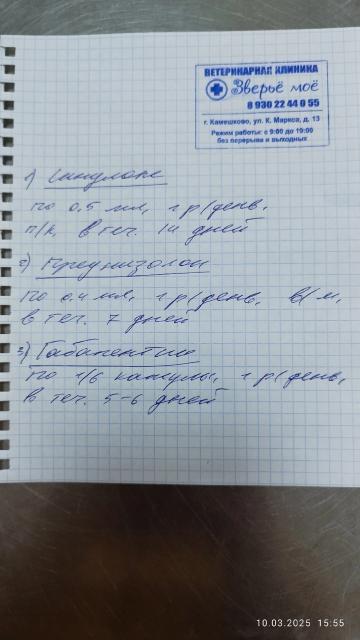 ВЕТЕРИНАРНАЯ КЛИНИКА
Зверьё моё
8 930 22 44 0 55
г. Камешково, ул. К. Маркса, д. 13
Режим работы: с 9:00 до 19:00
без перерыва и выходных
1) Синулокс
по 0,5 мл, 1 р/день,
п/к, в теч. 14 дней
2) Преднизолон
по 0,4 мл, 1 р/день, в/м,
в теч. 7 дней
3) Габапентин
по 1/6 капсулы, 1 р/день,
в теч. 5-6 дней
10.03.2025 15:55